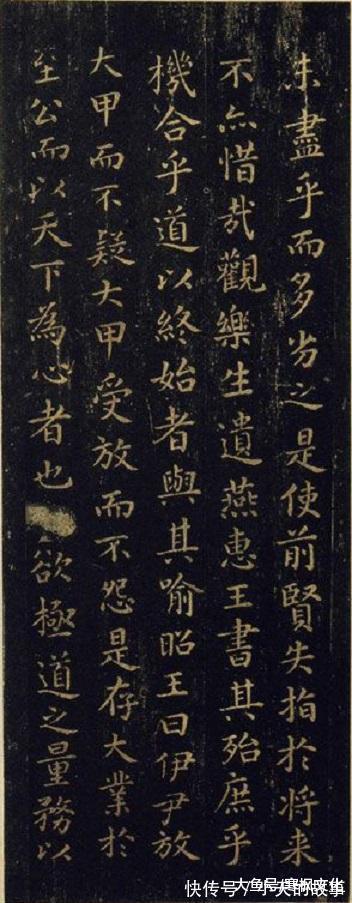 未盡乎而多劣之是使前賢失指於将来
不亦惜哉觀樂生遺燕惠王書其殆庶乎
機合乎道以終始者與其喻昭王曰伊尹放
大甲而不疑大甲受放而不怨是存大業於
至公而以天下為心者也欲極道之量務以
大鱼号
快传号/小天的故事